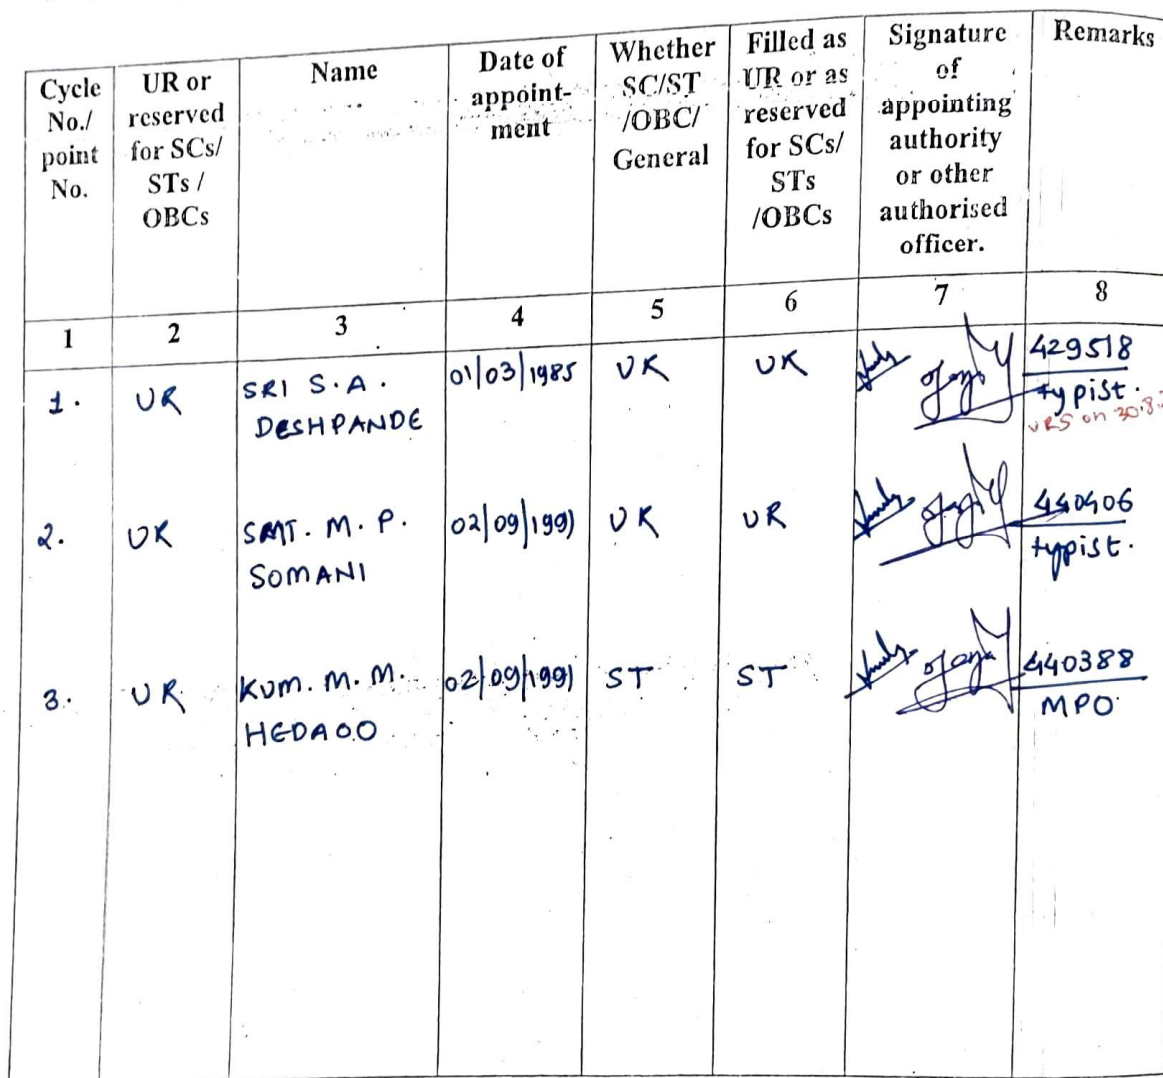 Cycle No./ point No.
UR or reserved for SCs/ STs / OBCs
Name
Date of appoint- ment
Whether SC/ST /OBC/ General
Filled as UR or as reserved for SCs/ STs /OBCs
Signature of appointing authority or other authorised officer.
Remarks
1 2 3 4 5 6 7 8
1. UR SRI S.A. 01/03/1985 UR UR 429518
DESHPANDE typist.
VRS on 30.8.
2. UR SMT. M. P. 02/09/1991 UR UR 440406
SOMANI typist.
3. UR KUM. M. M. 02/09/1991 ST ST 440388
HEDAOO MPO